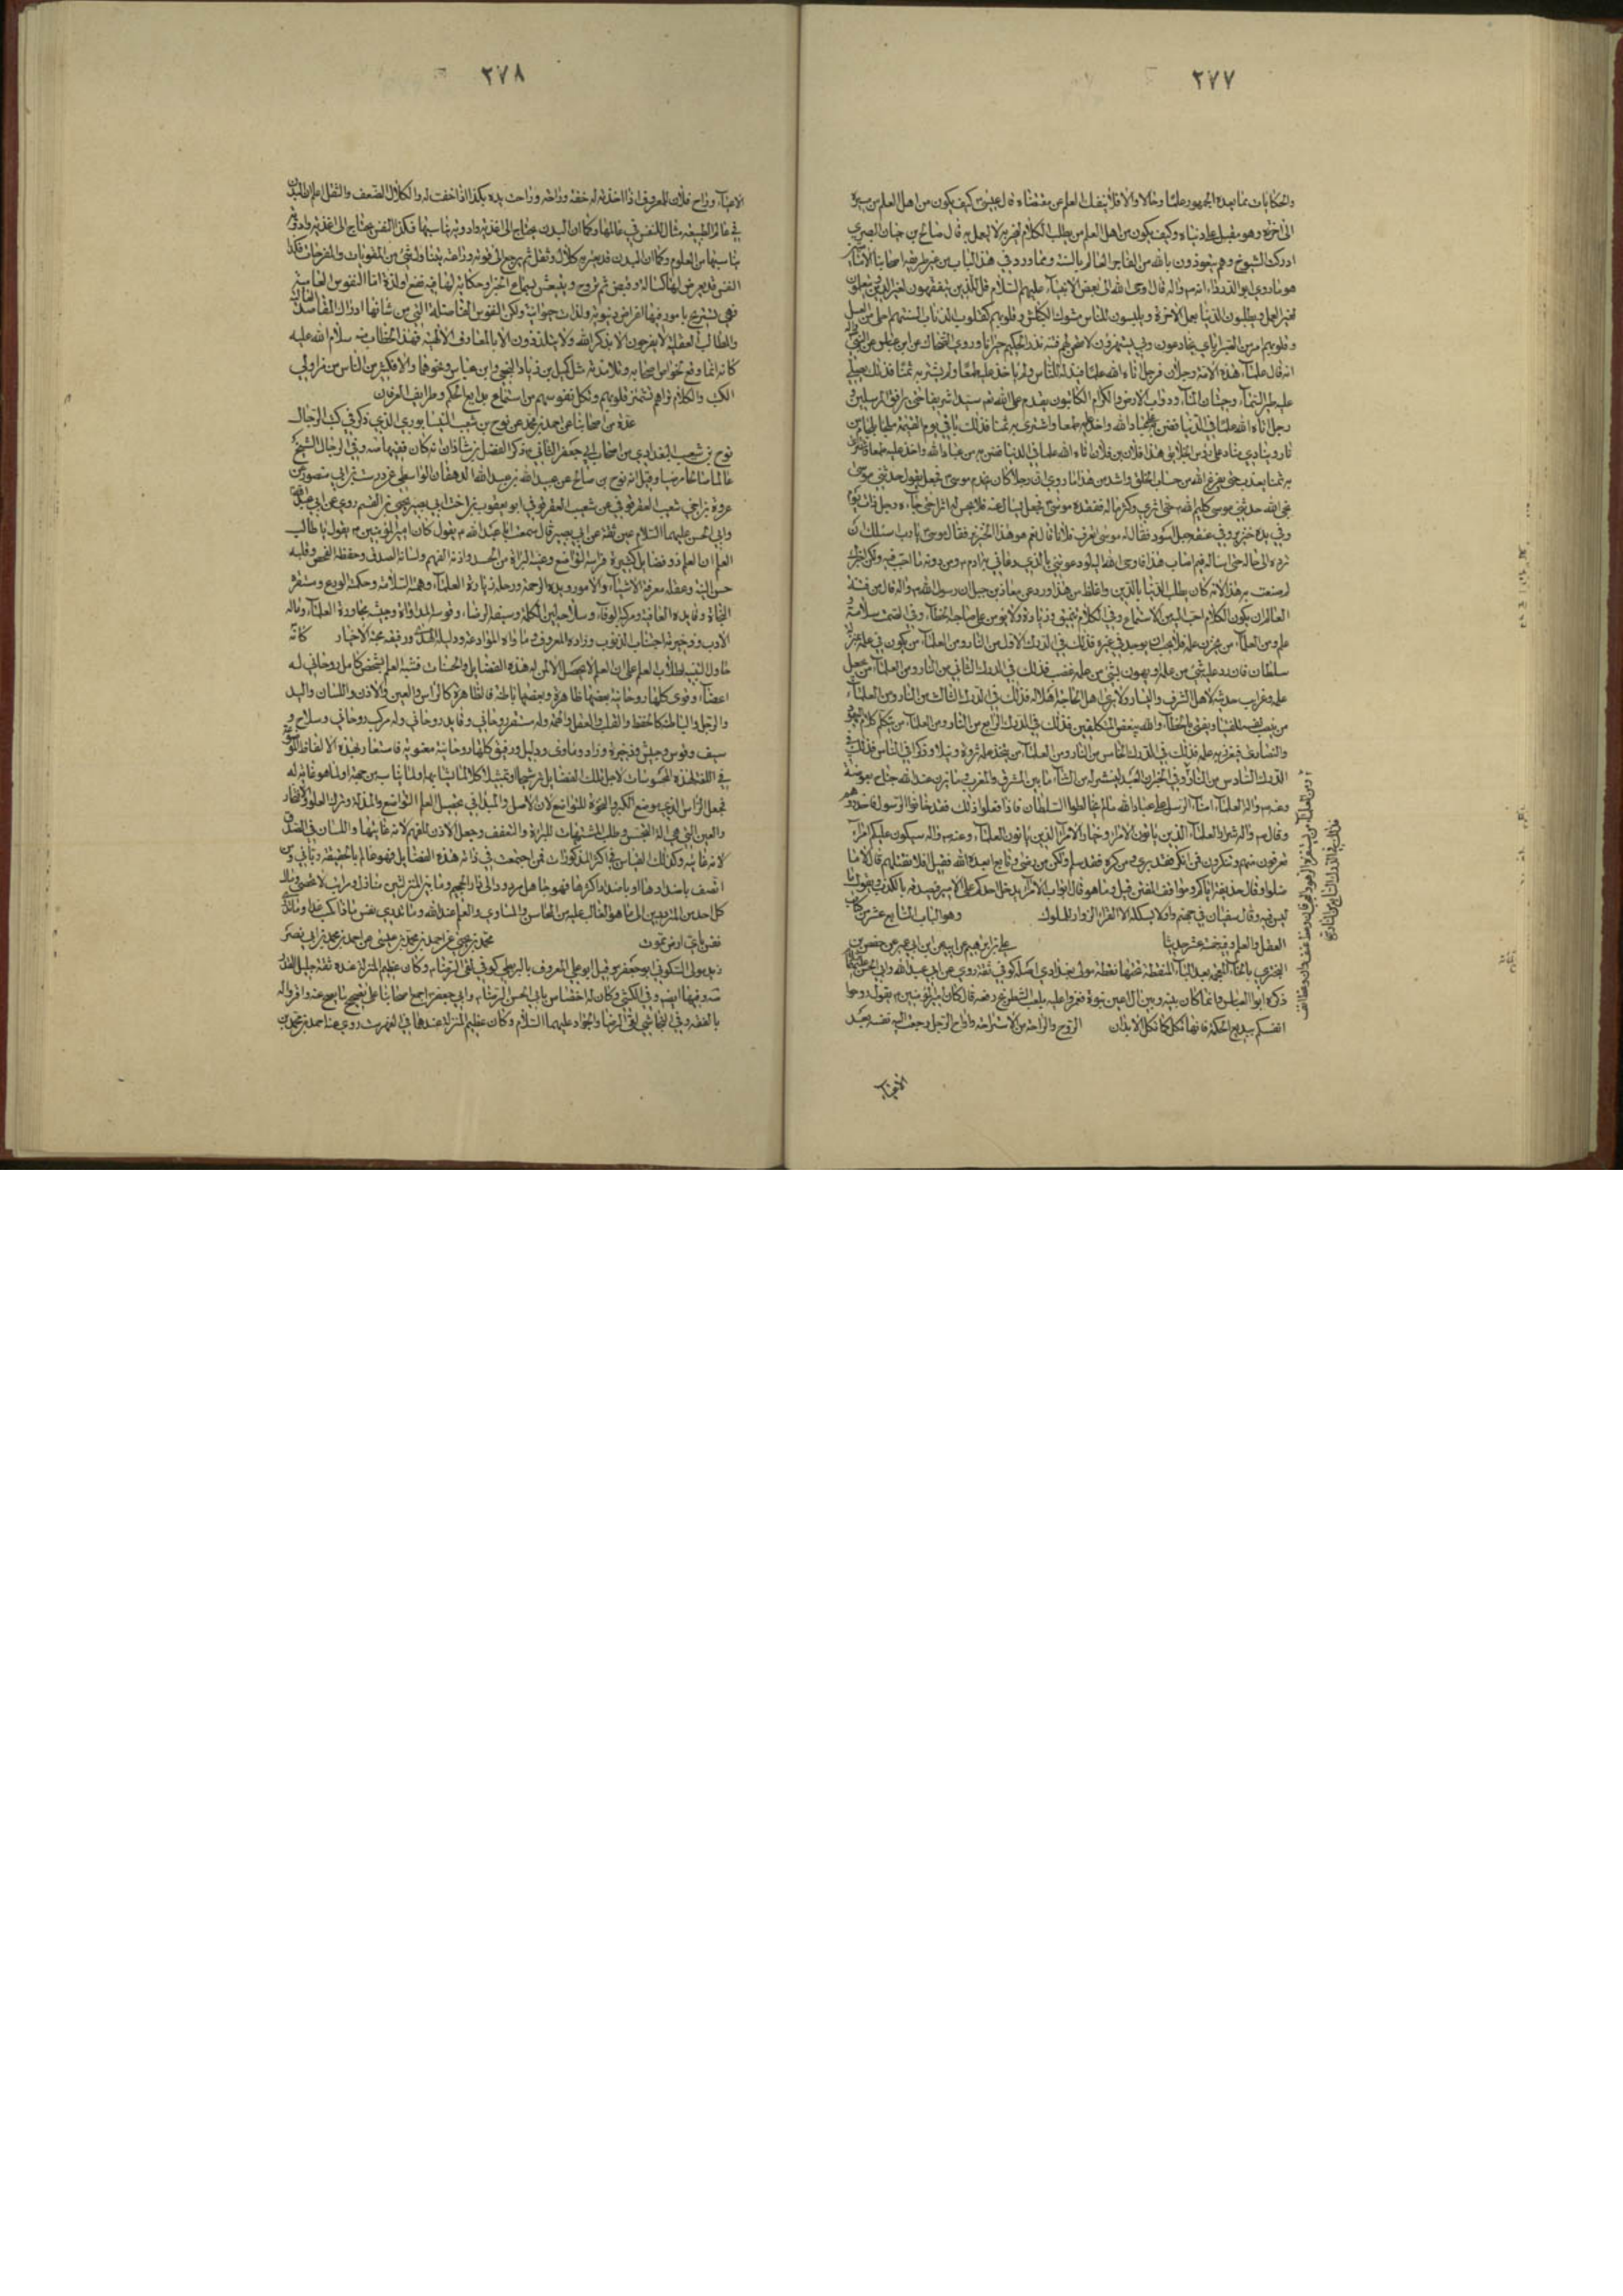 ٢٧٧
والحكايات مما يعده الجمهور علما وحالا والا فلا ينفك العلم عن مقتضاه قال عيسى كيف يكون من اهل العلم من مسيره
الى اخرته وهو مقبل على دنياه وكيف يكون من اهل العلم من يطلب الكلام ليخبر به لا ليعمل به قال صالح بن حسان البصري
ادركت الشيوخ وهم يتعوذون بالله من الفاجر العالم بالسنة ومما ورد في هذا الباب من غير طريق اصحابنا
ما روى ابو الدرداء انه ص واله قال اوحى الله الى بعض الانبياء عليهم السلام قل للذين يتفقهون لغير الدين ويتعلمون
لغير العمل ويطلبون الدنيا بعمل الاخرة ويلبسون للناس مسوك الكباش وقلوبهم كقلوب الذئاب السنتهم احلى من العسل
وقلوبهم امر من الصبر اياي يخادعون وبي يستهزؤن لاتيحن لهم فتنة تذر الحكيم حيرانا وروى الضحاك عن ابن عباس عن النبي
انه قال علماء هذه الامة رجلان فرجل اتاه الله علما فبذله للناس ولم ياخذ عليه طمعا ولم يشتر به ثمنا فذلك يصلي
عليه طير السماء وحيتان الماء ودواب الارض والكرام الكاتبون يقدم على الله سيدا شريفا حتى يرافق المرسلين
ورجل اتاه الله علما في الدنيا فضن به على عباد الله واخذ عليه طمعا واشترى به ثمنا فذلك ياتي يوم القيمة ملجما بلجام من
نار وينادي مناد على رؤس الخلائق هذا فلان بن فلان اتاه الله علما في الدنيا فضن به عن عباد الله واخذ عليه طمعا واشترى
به ثمنا يعذب حتى يفرغ الله من حساب الخلق واشد من هذا ما روي ان رجلا كان يخدم موسى فجعل يقول حدثني موسى
نجي الله حدثني موسى كليم الله حتى اثرى وكثر ماله ففقده موسى فجعل يسال عنه فلا يحس له اثرا حتى جاءه رجل ذات يوم
وفي يده خنزير وفي عنقه حبل اسود فقال له موسى اتعرف فلانا قال نعم هو هذا الخنزير فقال موسى يا رب اسئلك ان
ترده الى حاله حتى اساله فيم اصاب هذا فاوحى الله اليه لو دعوتني بالذي دعاني به ادم فمن دونه ما اجبتك فيه ولكن اخبرك
لم صنعت به هذا لانه كان يطلب الدنيا بالدين واغلظ من هذا ورد عن معاذ بن جبل ان رسول الله ص واله قال من فتنة
العالم ان يكون الكلام احب اليه من الاستماع وفي الكلام تنميق وزيادة ولا يؤمن على صاحبه الخطاء وفي الصمت سلامة
علم ومن العلماء من يخزن علمه فلا يحب ان يوجد في غيره فذلك في الدرك الاول من النار ومن العلماء من يكون في علمه بمنزلة
سلطان فان رد عليه شيء من علمه او تهون بشيء من علمه غضب فذلك في الدرك الثاني من النار ومن العلماء من يجعل
علمه وغرايب حديثه لاهل الشرف واليسار ولا يرى اهل الحاجة له اهلا فذلك في الدرك الثالث من النار ومن العلماء
من ينصب نفسه للفتيا ويفتي بالخطاء والله يبغض المتكلفين فذلك في الدرك الرابع من النار ومن العلماء من يتكلم كلام اليهود
والنصارى فيغزر به علمه فذلك في الدرك الخامس من النار ومن العلماء من يتخذ علمه مروة ونبلا وذكرا في الناس فذلك في
الدرك السادس من النار وفي الخبر ان العبد لينشر له من الثناء ما بين المشرق والمغرب وما يزن عند الله جناح بعوضة
وعنه ص واله العلماء امناء الرسل على عباد الله ما لم يخالطوا السلطان فاذا فعلوا ذلك فقد خانوا الرسول فاحذروهم
وقال ص واله شرار العلماء الذين ياتون الامراء وخيار الامراء الذين ياتون العلماء وعنه ص واله سيكون عليكم امراء
تعرفون منهم وتنكرون فمن انكر فقد برئ ومن كره فقد سلم ولكن من رضي وتابع ابعده الله قيل افلا نقتلهم قال لا ما
صلوا وقال حذيفة اياكم ومواقف الفتن قيل وما هو قال ابواب الامراء يدخل احدكم على الامير فيصدقه بالكذب ويقول ما
ليس فيه وقال سفيان في جهنم واد لا يسكنه الا القراء الزوارون للملوك وهو الباب السابع عشر من كتاب
العقل والعلم وفيه خمسة عشر حديثا علي بن ابراهيم عن ابيه عن ابن ابي عمير عن حفص بن
البختري بالخاء المعجمة بعد الباء المنقطة تحتها نقطة مولى بغدادي اصله كوفي ثقة روى عن ابي عبد الله وابي الحسن عليهما السلام
ذكره ابو العباس وانما كان بينه وبين ال اعين نبوة فغمزوا عليه بلعب الشطرنج رفعه قال كان امير المؤمنين يقول روحوا
انفسكم ببديع الحكمة فانها تكل كما تكل الابدان الروح والراحة من الاستراحة واراح الرجل رجعت اليه نفسه بعد
الاعياء
ومن العلماء من يستفزه الزهو والعجب فان وعظ عنف وان وعظ انف
فذلك في الدرك السابع من النار
٢٧٨
الاعياء وراح فلان للمعروف اذا اخذته له خفة وراحة وراحت يده بكذا اذا خفت له والكلال الضعف والثقل اعلم ان البدن
في عالم الطبيعة مثال للنفس في عالمها وكما ان البدن يحتاج الى اغذية وادوية يناسبها فكذا النفس يحتاج الى اغذية وادوية
يناسبها من العلوم وكما ان البدن قد يعتريه كلال وثقل ثم يرجع الى قوته وراحته بتناول شيء من المقويات والمفرحات فكذا
النفس قد يعرض لها كسالة وقبض ثم تروح وينبعث بسماع
فهي تستريح بامور فيها اغراض دنيوية ولذات حيوانية ولكن النفوس الفاضلة التي من شانها ادراك المقاصد
والمطالب العقلية لا يفرحون الا بذكر الله ولا يتلذذون الا بالمعارف الالهية فهذا الخطاب منه سلام الله عليه
كانه انما وقع لخواص اصحابه وتلامذته مثل كميل بن زياد النخعي وابن عباس ونحوهما والا فكثير من الناس من
الكتب والكلام تراهم تشمئز قلوبهم وتكل نفوسهم من استماع بدايع الحكم وطرايف العرفان
عدة من اصحابنا عن احمد بن محمد عن نوح بن شعيب النيسابوري الذي ذكر في كتب الرجال
نوح بن شعيب البغدادي من اصحاب ابي جعفر الثاني ذكر الفضل بن شاذان انه كان فقيها
عالما صالحا مرضيا وقيل انه نوح بن صالح عن عبيد الله بن عبد الله الدهقان الواسطي عن درست بن ابي منصور عن
عروة بن اخي شعيب العقرقوفي عن شعيب العقرقوفي ابو يعقوب بن اخت ابي بصير يحيى بن القسم روى عن ابي عبد الله
وابي الحسن عليهما السلام عين ثقة عن ابي بصير قال سمعت ابا عبد الله يقول كان امير المؤمنين يقول يا طالب
العلم ان العلم ذو فضايل كثيرة فراسه التواضع وعينه البراءة من الحسد واذنه الفهم ولسانه الصدق وحفظه الفحص وقلبه
حسن النية وعقله معرفة الاشياء والامور ويده الرحمة ورجله زيارة العلماء وهمته السلامة وحكمته الورع ومستقره
النجاة وقايده العافية ومركبه الوفاء وسلاحه لين الكلمة وسيفه الرضاء وقوسه المداراة وجيشه محاورة العلماء وماله
الادب وذخيرته اجتناب الذنوب وزاده المعروف وماواه الموادعة ودليله الهدى ورفيقه محبة الاخيار كانه
حاول التنبيه لطلاب العلم على ان العلم لا يحصل الا لمن له هذه الفضايل والحسنات فشبه العلم بشخص كامل روحاني له
اعضاء وقوى كلها روحانية بعضها ظاهرة وبعضها باطنة فالظاهرة كالراس والعين والاذن واللسان واليد
والرجل والباطنة كالحفظ والقلب والعقل والهمة وله مستقر روحاني وقايد روحاني وله مركب روحاني وسلاح و
سيف وقوس وجيش وذخيرة وزاد وماوى ودليل ورفيق كلها روحانية معنوية فاستعار لهذه الالفاظ الموضوعة
في اللغة لهذه المحسوسات لاجل تلك الفضايل ترشيحا وتمثيلا كلا لما يشابهه ولما يناسبه من جهة اولما هو غاية له
فجعل الراس الذي يوضع الكبر والنخوة للتواضع لان الاصل والمبدا في تحصيل العلم التواضع والمذلة وترك العلو والافتخار
والعين التي هي الة التجسس وطلب المشتهيات للبراءة والتعفف وجعل الاذن للفهم لانه غايتها واللسان في الصدق
لانه غايته وكذلك القياس في اكثر المذكورات فمن اجتمعت في ذاته هذه الفضايل فهو عالم بالحقيقة رباني ومن
اتصف باضدادها او باضداد اكثرها فهو جاهل مردود الى نار الجحيم وما بين المنزلتين منازل ومراتب لا تحصى ومال
كل احد من المنزلين الى ما هو الغالب عليه من المحاسن والمساوي والعلم عند الله وما تدري نفس ماذا تكسب غدا وما تدري
نفس باي ارض تموت محمد بن يحيى عن احمد بن محمد بن عيسى عن احمد بن محمد بن ابي نصر
زيد مولى السكوني ابو جعفر وقيل ابو علي المعروف بالبزنطي كوفي لقي الرضا وكان عظيم المنزلة عنده ثقة جليل القدر
وفي الكشي وكان له اختصاص بابي الحسن الرضا وابي جعفر اجمع اصحابنا على تصحيح ما يصح عنه واقروا له
بالفقه وفي النجاشي لقي الرضا والجواد عليهما السلام وكان عظيم المنزلة عندهما في الفهرست روى عنه احمد بن محمد بن